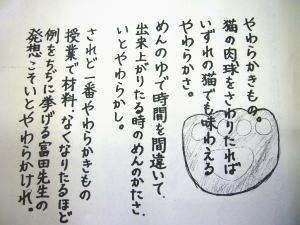 やわらかきもの。
猫の肉球をさわりたれば
いずれの猫でも味わえる
やわらかさ。
めんのゆで時間を間違いて、
出来上がりたる時のめんのかたさ、
いとやわらかし。
されど一番やわらかきもの
授業で材料、なくなりたるほど
例をちぢに挙げる富田先生の
発想こそいとやわらかけれ。